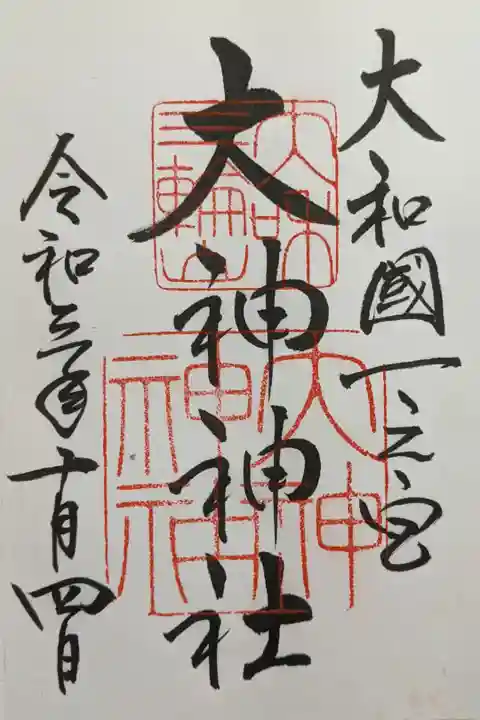 大和國一之宮
大神神社
令和三年十月四日
三輪山
大神
神社